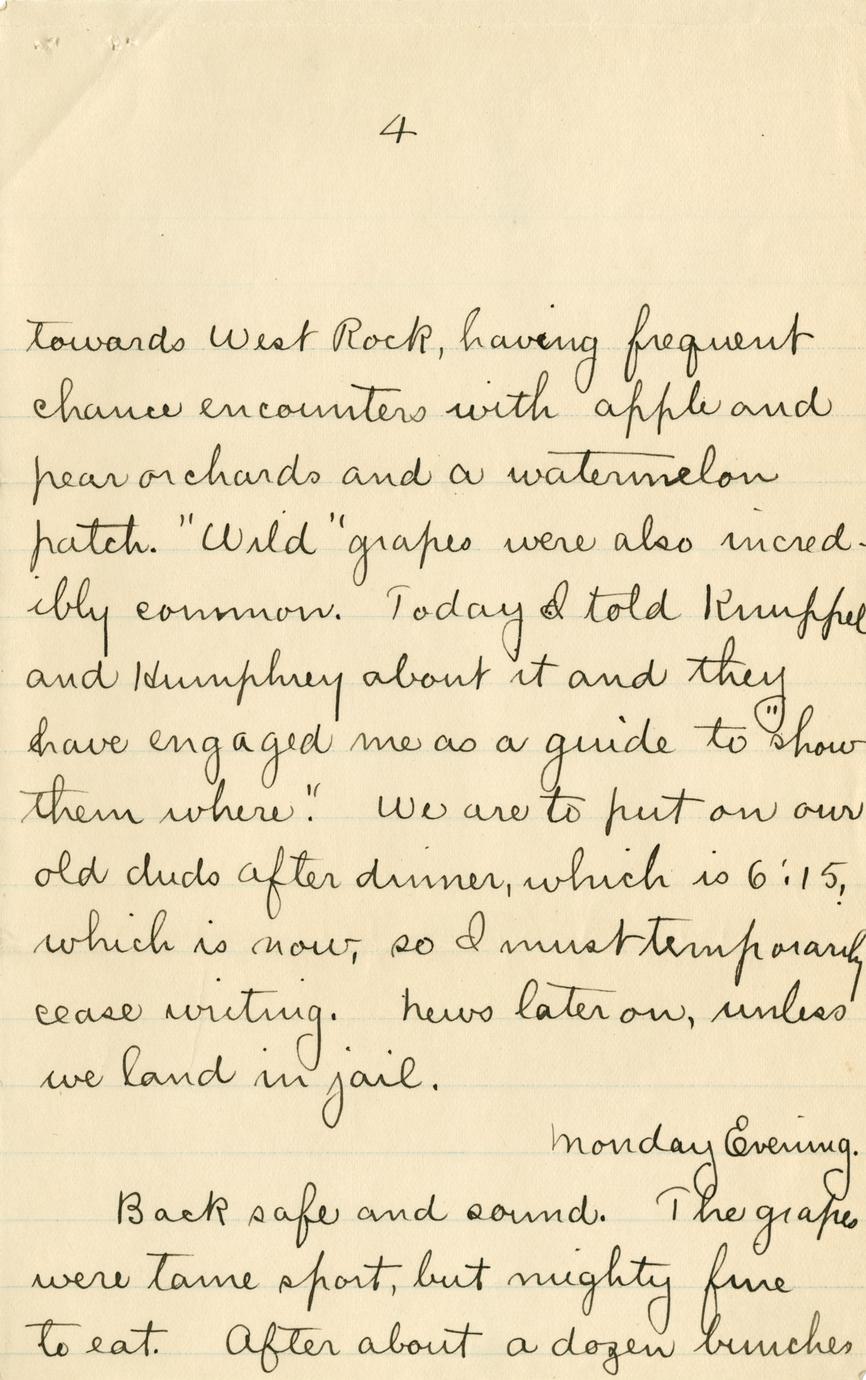 4
towards West Rock, having frequent
chance encounters with apple and
pear orchards and a watermelon
patch. "Wild" grapes were also incred-
ibly common. Today I told Knuppel
and Humphrey about it and they
have engaged me as a guide to "show
them where". We are to put on our
old duds after dinner, which is 6:15,
which is now, so I must temporarily
cease writing. News later on, unless
we land in jail.
Monday Evening.
Back safe and sound. The grapes
were tame sport, but mighty fine
to eat. After about a dozen bunches